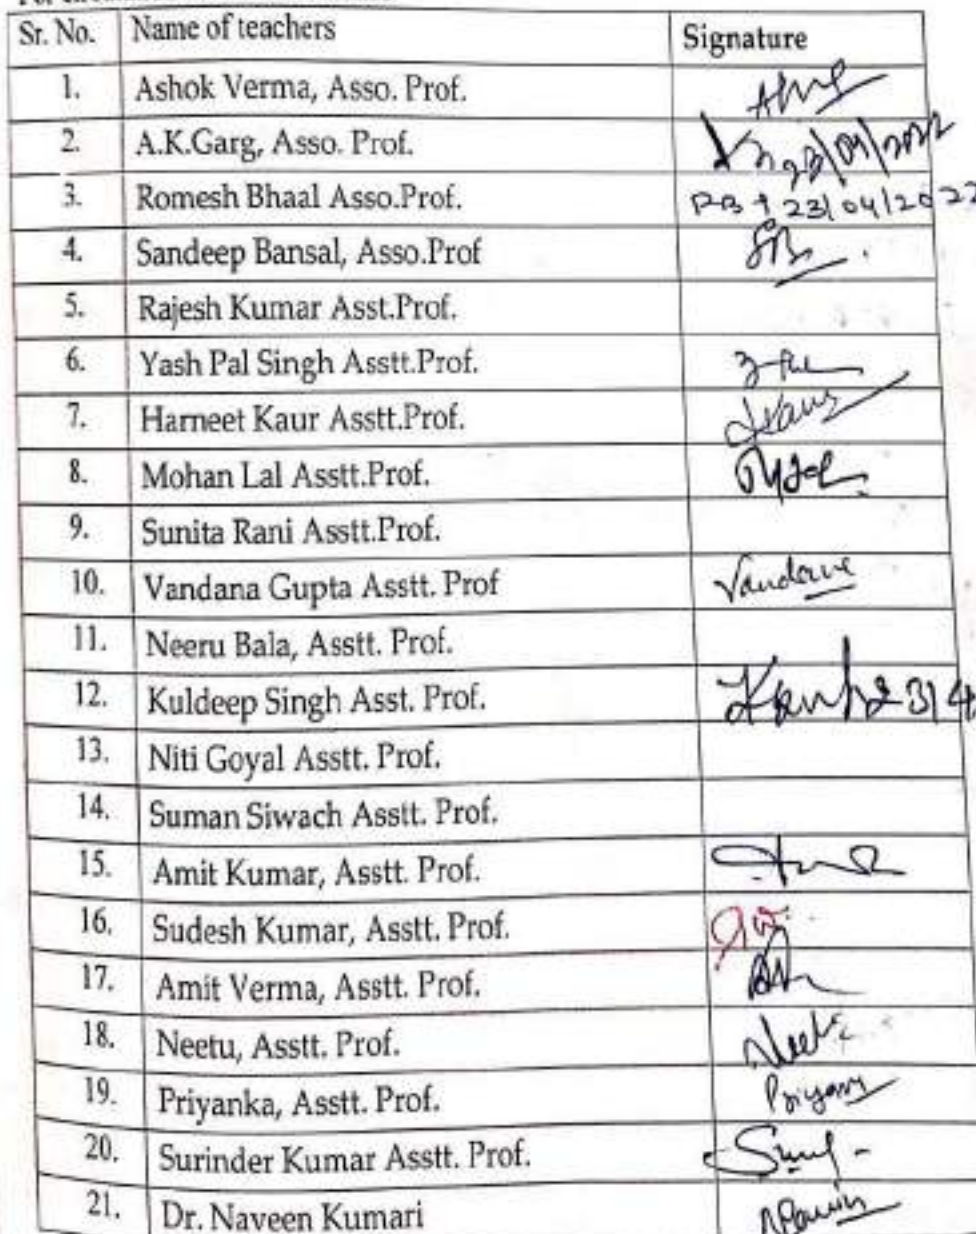 Sr. No. Name of teachers Signature
1. Ashok Verma, Asso. Prof.
2. A.K.Garg, Asso. Prof. 23/04/2022
3. Romesh Bhaal Asso.Prof. 23/04/2022
4. Sandeep Bansal, Asso.Prof
5. Rajesh Kumar Asst.Prof.
6. Yash Pal Singh Asstt.Prof.
7. Harneet Kaur Asstt.Prof. Kaur
8. Mohan Lal Asstt.Prof.
9. Sunita Rani Asstt.Prof.
10. Vandana Gupta Asstt. Prof Vandana
11. Neeru Bala, Asstt. Prof.
12. Kuldeep Singh Asst. Prof.
13. Niti Goyal Asstt. Prof.
14. Suman Siwach Asstt. Prof.
15. Amit Kumar, Asstt. Prof.
16. Sudesh Kumar, Asstt. Prof.
17. Amit Verma, Asstt. Prof.
18. Neetu, Asstt. Prof. Neetu
19. Priyanka, Asstt. Prof.
20. Surinder Kumar Asstt. Prof.
21. Dr. Naveen Kumari